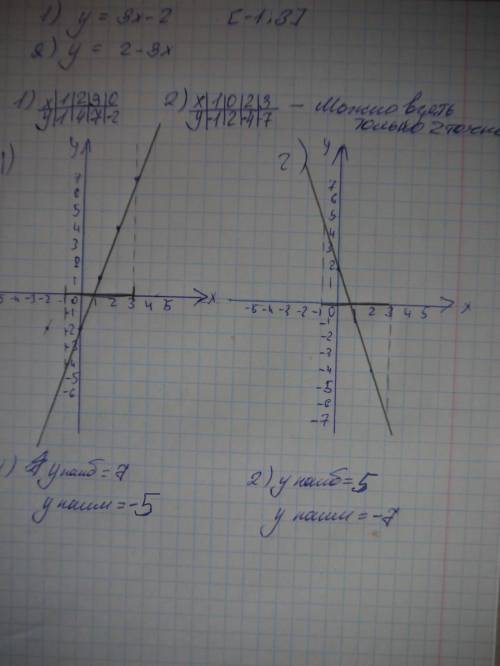 1) y = 3x-2 [-1;3]
2) y = 2-3x
1) x | 1 | 2 | 3 | 0
y | 1 | 4 | 7 | -2
2) x | 1 | 0 | 2 | 3 — Можно взять
y | -1 | 2 | -4 | -7 только 2 точки
1) y
7
6
5
4
3
2
1
-5 -4 -3 -2 -1 0 1 2 3 4 5 x
-1
-2
-3
-4
-5
-6
2) y
7
6
5
4
3
2
1
-5 -4 -3 -2 -1 0 2 3 4 5 x
-1
-2
-3
-4
-5
-6
-7
1) y наиб = 7
y наим = -5
2) y наиб = 5
y наим = -7